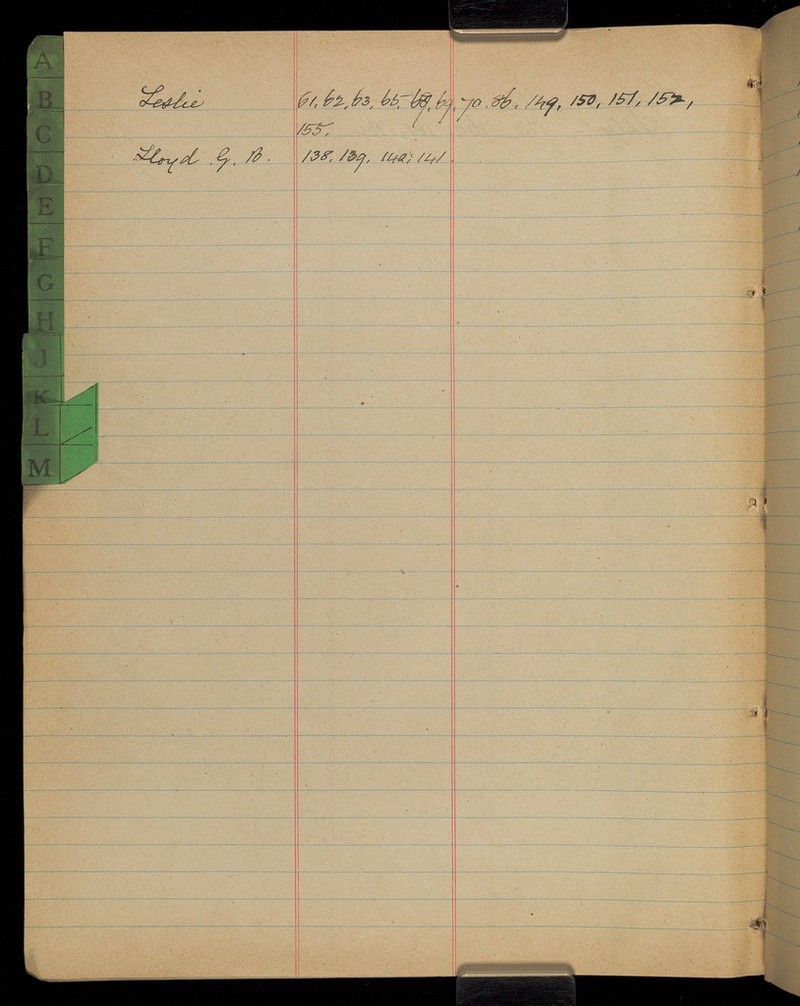 A
B
C
D
E
F
G
H
J
K
L
M
Leslie 61, 62, 63, 65, 68, 69, 70, 86, 149, 150, 151, 152,
155,
Lloyd G. B. 138, 139, 140, 141.